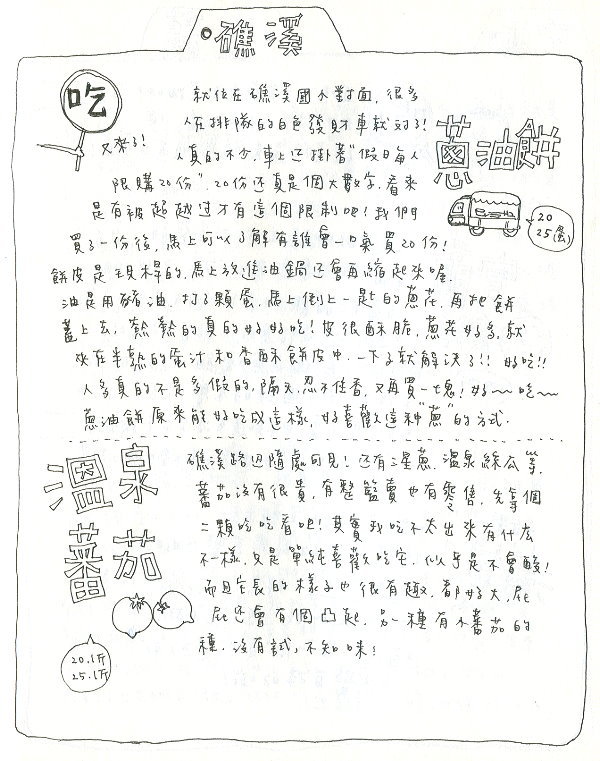 礁溪
吃
又來了!
就位在礁溪國小對面,很多
人在排隊的白色發財車就對了!
人真的不少,車上還掛著"假日每人
限購20份",20份還真是個大數字,看來
是有被超越過才有這個限制吧!我們
買了一份後,馬上可以了解有誰會一口氣買20份!
餅皮是現桿的,馬上放進油鍋還會再縮起來喔,
油是用豬油,打了顆蛋,馬上倒上一匙的蔥花,再把餅
蓋上去,熱熱的真的好好吃!皮很酥脆,蔥花好多,就
夾在半熟的蛋汁和香酥餅皮中,一下子就解決了!!好吃!!
人多真的不是多假的,隔天,忍不住香,又再買一塊!好~~吃~~
蔥油餅原來能好吃成這樣,好喜歡這種"蔥"的方式.
蔥油餅
20
25(蛋)
溫泉
蕃茄
礁溪路邊隨處可見!還有三星蔥,溫泉絲瓜等,
蕃茄沒有很貴,有整籃賣也有零售,先拿個
二顆吃吃看吧!其實我吃不太出來有什么
不一樣,只是單純喜歡吃它,似乎是不會酸!
而且它長的樣子也很有趣,都好大,屁
屁還會有個凸起,另一種有水蕃茄的
種,沒有試,不知味!
20.1斤
25.1斤